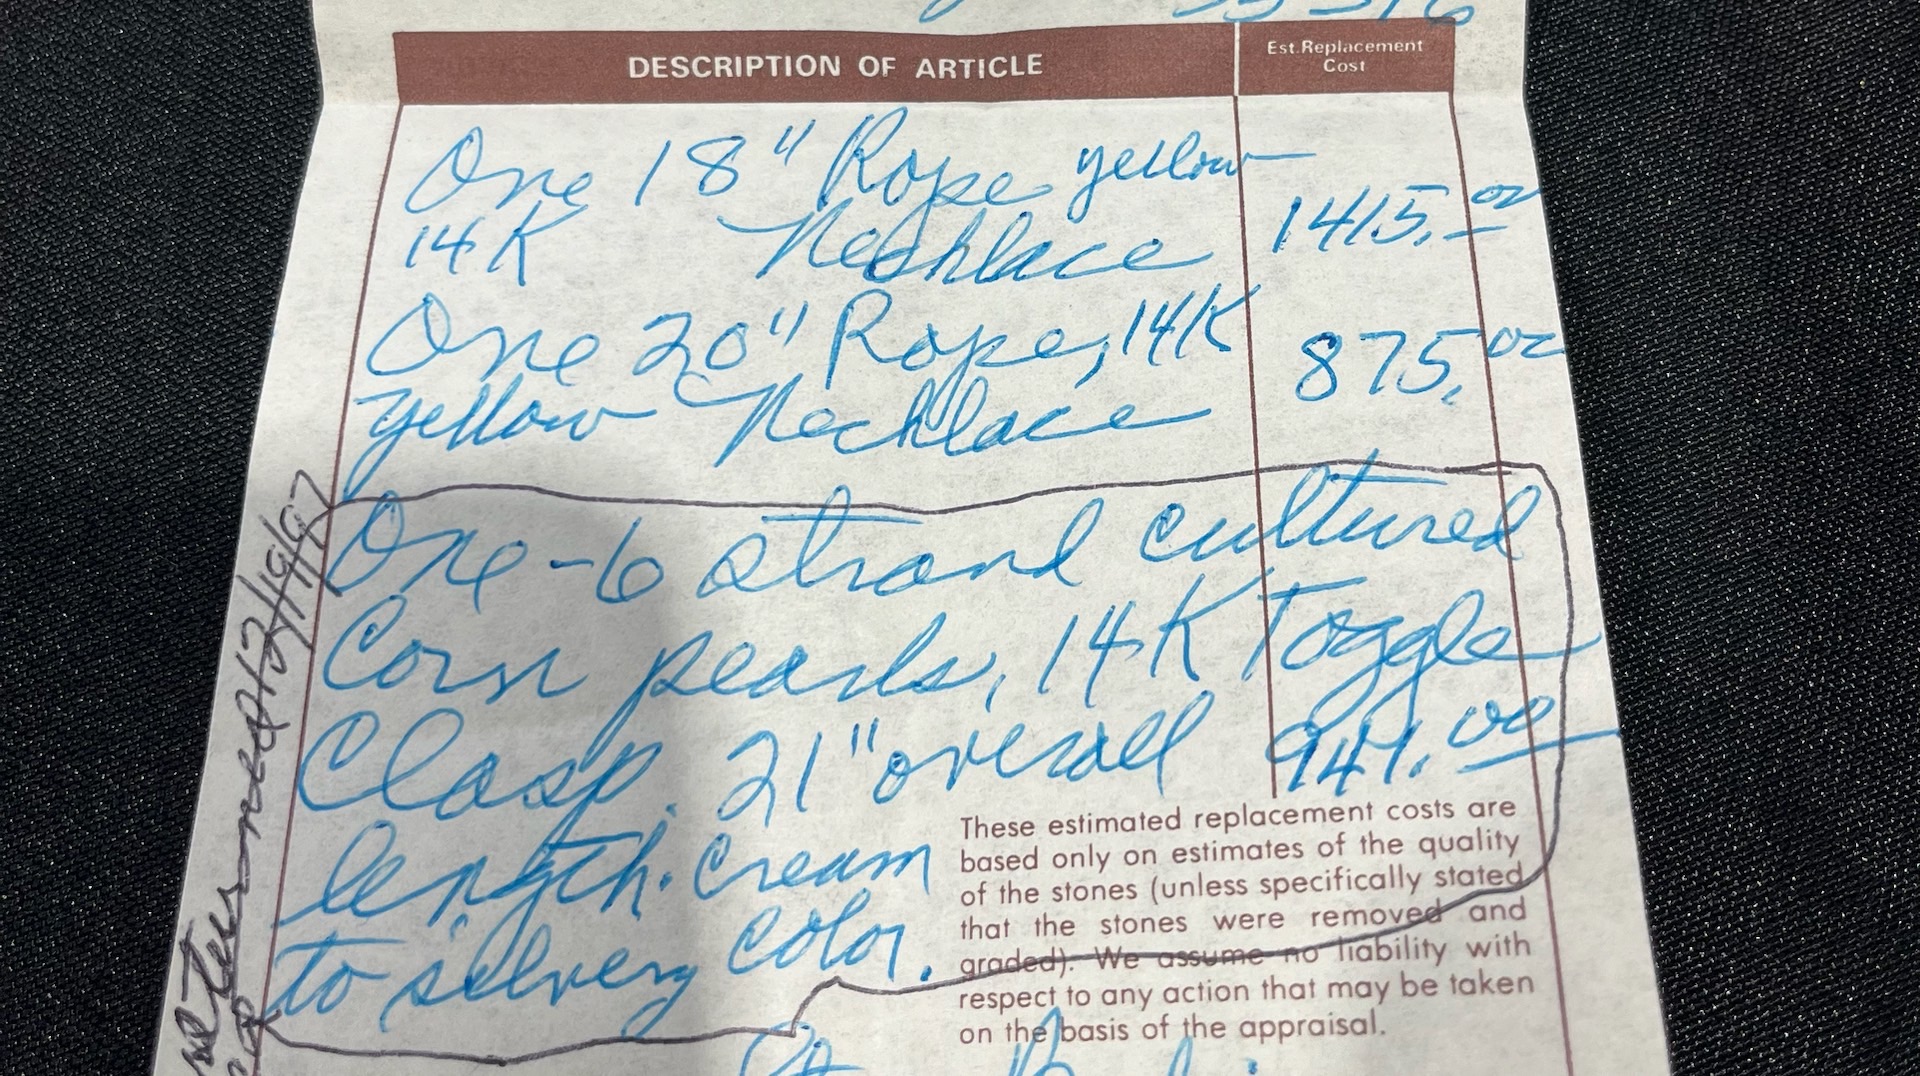 DESCRIPTION OF ARTICLE
Est. Replacement
Cost
One 18" Rope yellow
14K Necklace 1415.00
One 20" Rope, 14K
yellow Necklace 875.00
One - 6 strand cultured
Corn pearls, 14K Toggle
Clasp. 21" overall 941.00
length. Cream
to silvery color.
These estimated replacement costs are
based only on estimates of the quality
of the stones (unless specifically stated
that the stones were removed and
graded). We assume no liability with
respect to any action that may be taken
on the basis of the appraisal.
12/19/97